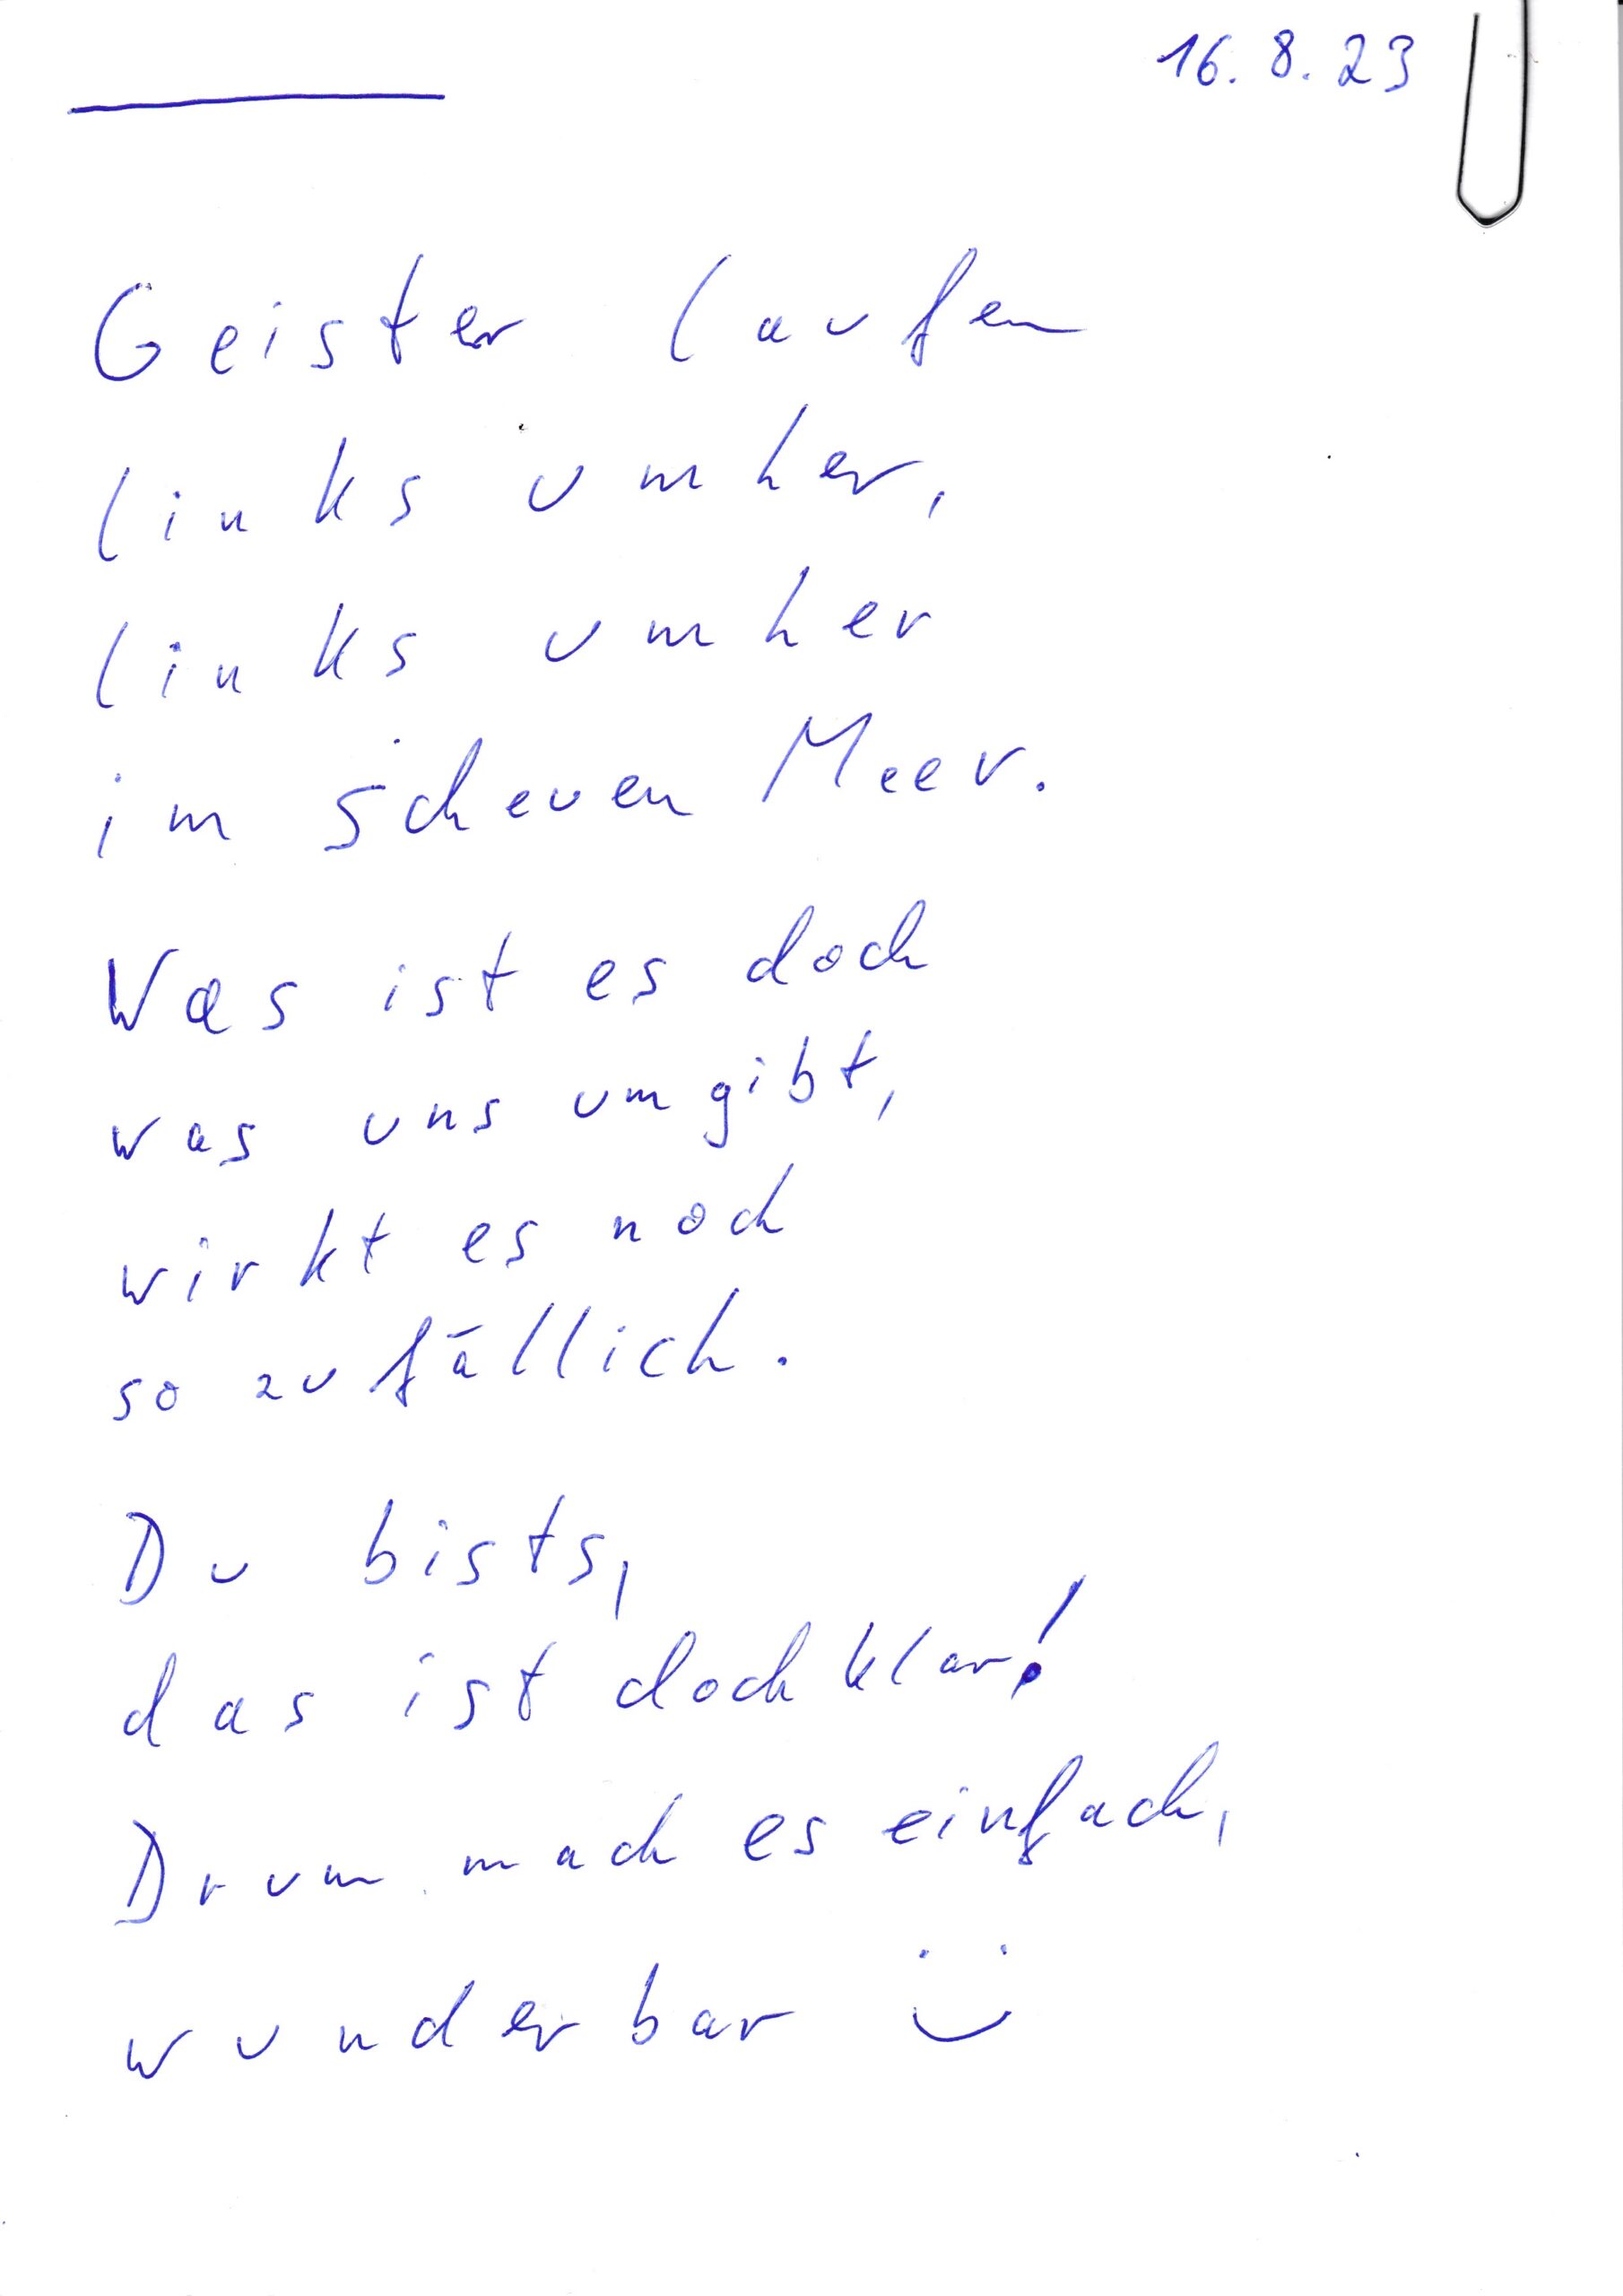 16. 8. 23
Geister laufen
links umher,
links umher
im scheuen Meer.
Was ist es doch
was uns umgibt,
wirkt es noch
so zufällich.
Du bists,
das ist doch klar!
Drum mach es einfach,
wunderbar